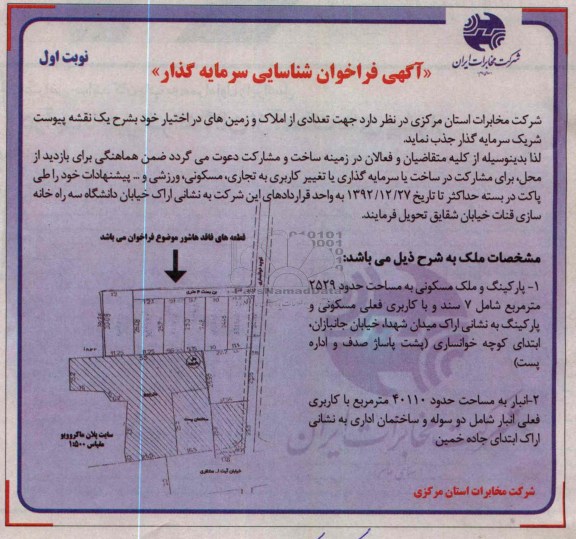 شرکت مخابرات ایران
نوبت اول
«آگهی فراخوان شناسایی سرمایه گذار»
شرکت مخابرات استان مرکزی در نظر دارد جهت تعدادی از املاک و زمین های در اختیار خود بشرح یک نقشه پیوست
شریک سرمایه گذار جذب نماید.
لذا بدینوسیله از کلیه متقاضیان و فعالان در زمینه ساخت و مشارکت دعوت می گردد ضمن هماهنگی برای بازدید از
محل، برای مشارکت در ساخت یا سرمایه گذاری یا تغییر کاربری به تجاری، مسکونی، ورزشی و ... پیشنهادات خود را طی
پاکت در بسته حداکثر تا تاریخ ۱۳۹۲/۱۲/۲۷ به واحد قراردادهای این شرکت به نشانی اراک خیابان دانشگاه سه راه خانه
سازی قنات خیابان شقایق تحویل فرمایند.
قطعه های فاقد هاشور موضوع فراخوان می باشد
مشخصات ملک به شرح ذیل می باشد:
۱- پارکینگ و ملک مسکونی به مساحت حدود ۲۵۲۹
مترمربع شامل ۷ سند و با کاربری فعلی مسکونی و
پارکینگ به نشانی اراک میدان شهدا، خیابان جانبازان،
ابتدای کوچه خوانساری (پشت پاساژ صدف و اداره
پست)
۲-انبار به مساحت حدود ۴۰۱۱۰ مترمربع با کاربری
فعلی انبار شامل دو سوله و ساختمان اداری به نشانی
اراک ابتدای جاده خمین
سایت پلان ماکروویو
مقیاس ۱:۵۰۰
شرکت مخابرات استان مرکزی